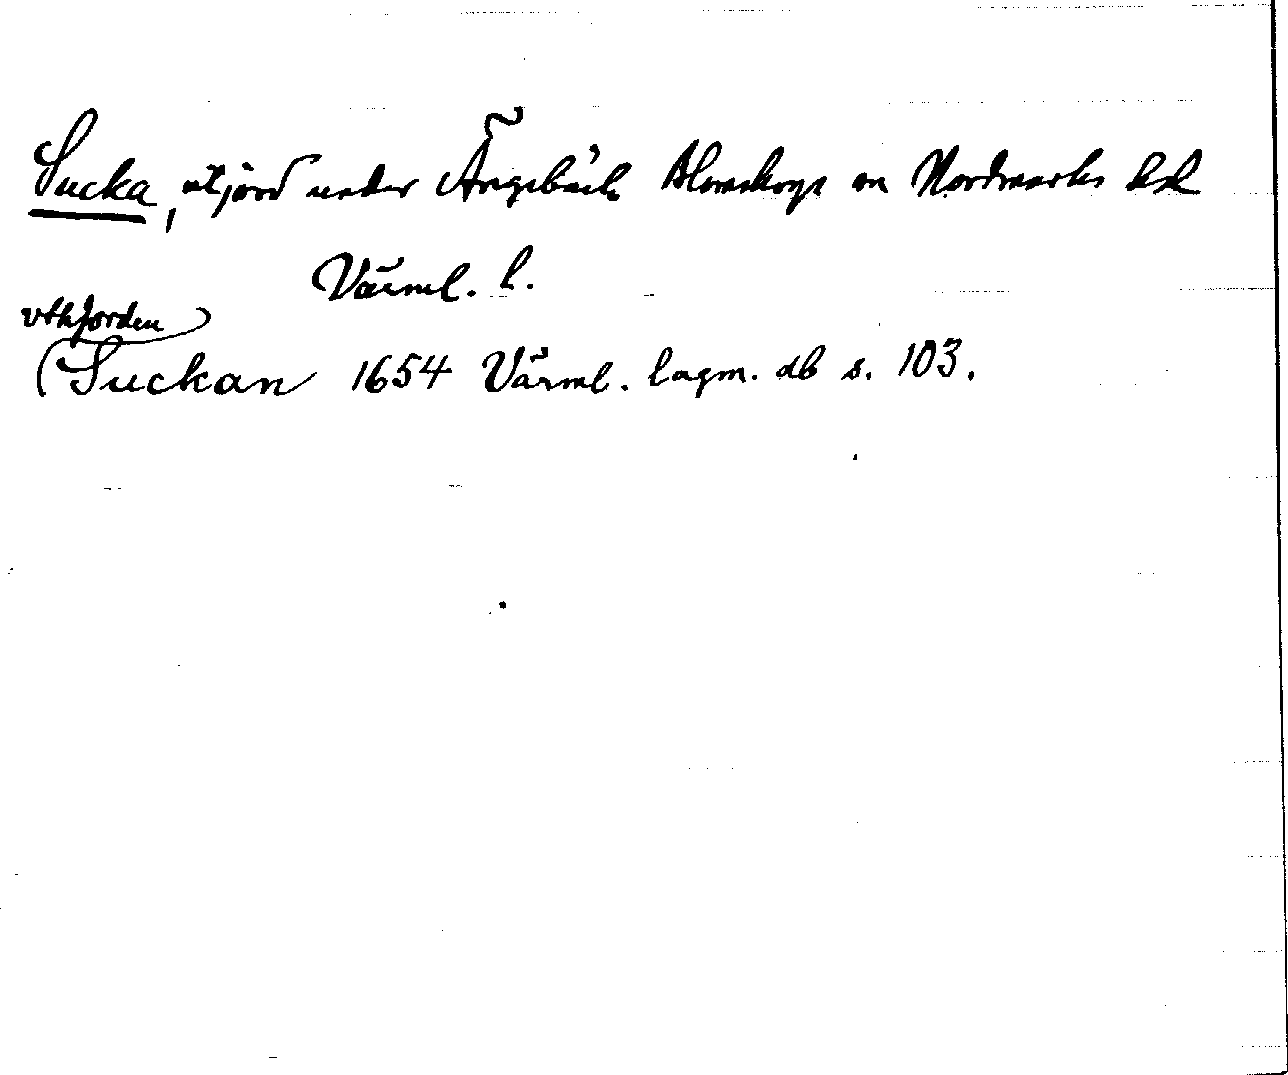 Sucka, utjord under Ängebäck Blomskogs sn Nordmarks hd
Värml. l.
vthjorden
(Suckan 1654 Värml. lagm. db s. 103.